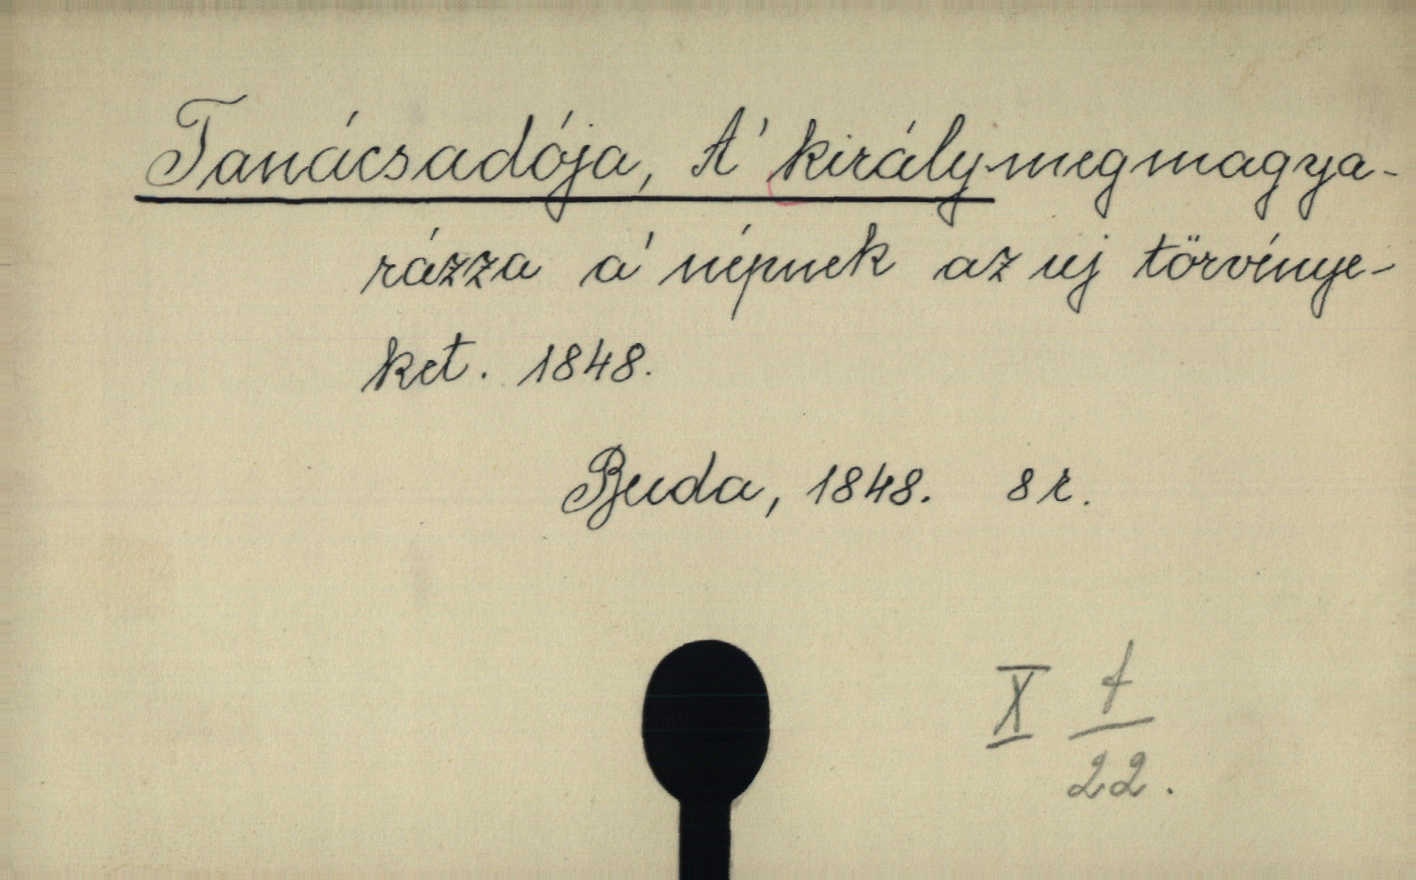 Tanácsadója, A' király megmagya-
rázza a' népnek az uj törvénye-
ket. 1848.
Buda, 1848. 8 r.
X f
22.